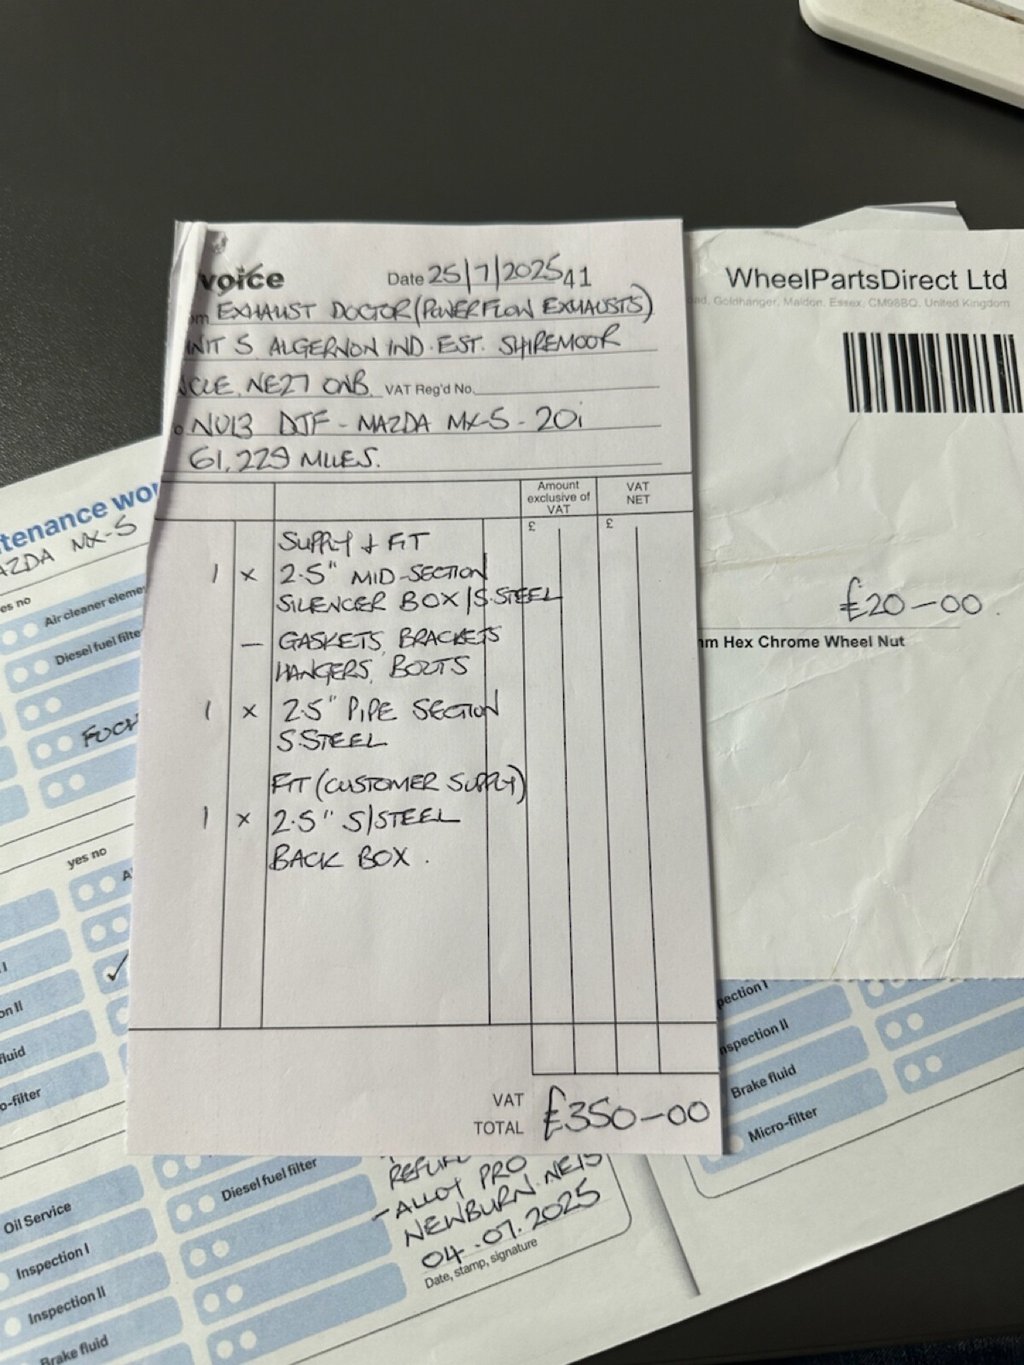 voice
Date 25/7/2025 41
EXHAUST DOCTOR (POWERFLOW EXHAUSTS)
NIT 5 ALGERNON IND. EST. SHIREMOOR
CLE. NE27 0NB. VAT Reg'd No.
NU13 DTF - MAZDA MX-5 - 20i
61,229 MILES.
Amount exclusive of VAT
VAT NET
£ £
SUPPLY & FIT
1 x 2.5" MID-SECTION
SILENCER BOX/S.STEEL
— GASKETS, BRACKETS
HANGERS, BOLTS
1 x 2.5" PIPE SECTION
S.STEEL
FIT (CUSTOMER SUPPLY)
1 x 2.5" S/STEEL
BACK BOX.
VAT
TOTAL £350-00
WheelPartsDirect Ltd
Goldhanger, Maldon, Essex, CM98BQ, United Kingdom
£20-00.
Hex Chrome Wheel Nut
tenance
AZDA MX-5
es no
Air cleaner eleme
Diesel fuel filte
yes no
on II
fluid
o-filter
Oil Service
Inspection I
Inspection II
Brake fluid
Diesel fuel filter
- ALLOY PRO
NEWBURN. NE15
04.07.2025
Date, stamp, signature
pection I
nspection II
Brake fluid
Micro-filter